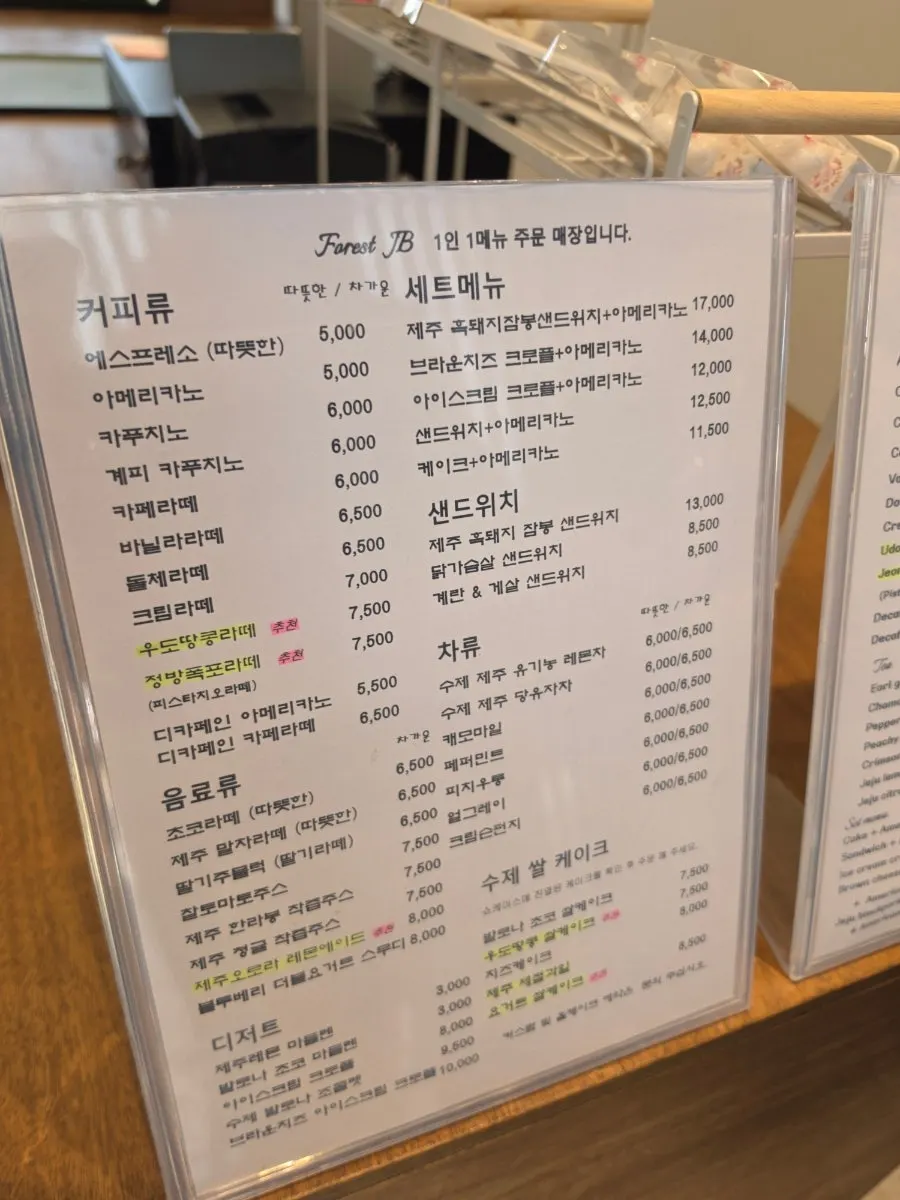 Forest JB 1인 1메뉴 주문 매장입니다.
커피류 따뜻한 / 차가운
에스프레소 (따뜻한) 5,000
아메리카노 5,000
카푸치노 6,000
계피 카푸치노 6,000
카페라떼 6,000
바닐라라떼 6,500
돌체라떼 6,500
크림라떼 7,000
우도땅콩라떼 추천 7,500
정방폭포라떼 추천 7,500
(피스타치오라떼)
디카페인 아메리카노 5,500
디카페인 카페라떼 6,500
음료류 차가운
초코라떼 (따뜻한) 6,500
제주 말차라떼 (따뜻한) 6,500
딸기주물럭 (딸기라떼) 6,500
찰토마토주스 7,500
제주 한라봉 착즙주스 7,500
제주 청귤 착즙주스 7,500
제주오로라 레몬에이드 추천 8,000
블루베리 더블요거트 스무디 8,000
디저트
제주레몬 마들렌 3,000
발로나 초코 마들렌 3,000
아이스크림 크로플 8,000
수제 발로나 초콜렛 9,500
브라운치즈 아이스크림 크로플 10,000
세트메뉴
제주 흑돼지잠봉샌드위치+아메리카노 17,000
브라운치즈 크로플+아메리카노 14,000
아이스크림 크로플+아메리카노 12,000
샌드위치+아메리카노 12,500
케이크+아메리카노 11,500
샌드위치
제주 흑돼지 잠봉 샌드위치 13,000
닭가슴살 샌드위치 8,500
계란 & 게살 샌드위치 8,500
차류 따뜻한 / 차가운
수제 제주 유기농 레몬차 6,000/6,500
수제 제주 당유자차 6,000/6,500
캐모마일 6,000/6,500
페퍼민트 6,000/6,500
피치우롱 6,000/6,500
얼그레이 6,000/6,500
크림슨펀치 6,000/6,500
수제 쌀 케이크
쇼케이스에 진열된 케이크를 확인 후 주문 해 주세요.
발로나 초코 쌀케이크 7,500
우도땅콩 쌀케이크 추천 7,500
치즈케이크 8,000
제주 제철과일
요거트 쌀케이크 추천 8,500
커스텀 및 홀케이크 예약은 문의 주십시오.
Tea
Earl g
Cham
Pepper
Peachy
Crimson
Jeju lem
Jeju citr
Set menu
Cake + Ame
Sandwich +
Ice cream cr
Brown cheese